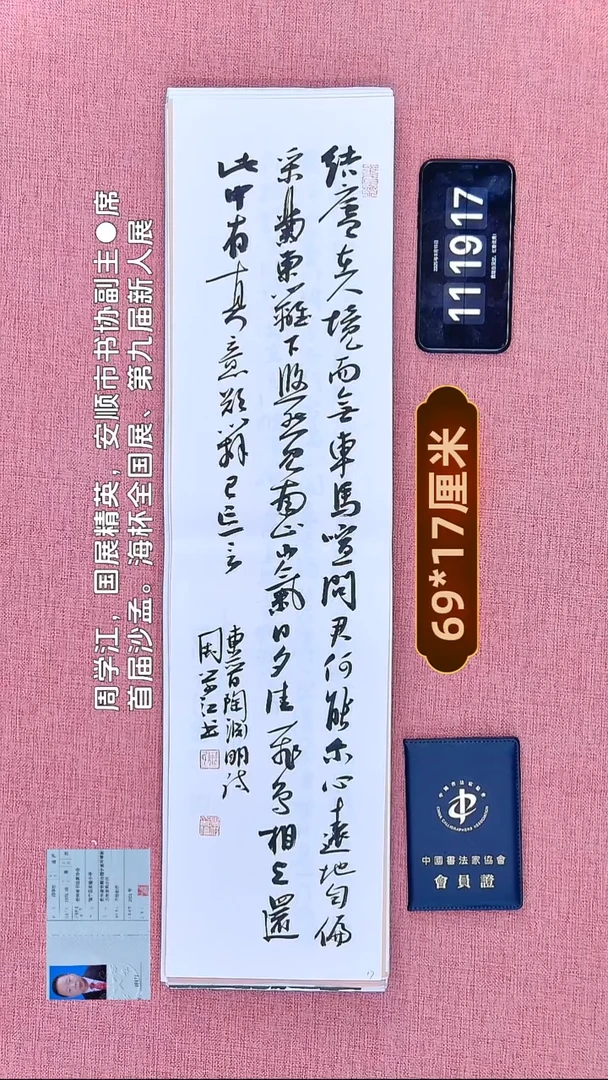 周学江，国展精英，安顺市书协副主●席
首届沙孟。海杯全国展、第九届新人展
結廬在人境而無車馬喧問君何能尔心遠地自偏
采菊東籬下悠然見南山山氣日夕佳飛鳥相与還
此中有真意欲辨已忘言
東晋陶淵明诗
周学江书
11 19 17
69*17厘米
中國書法家協會
會員證